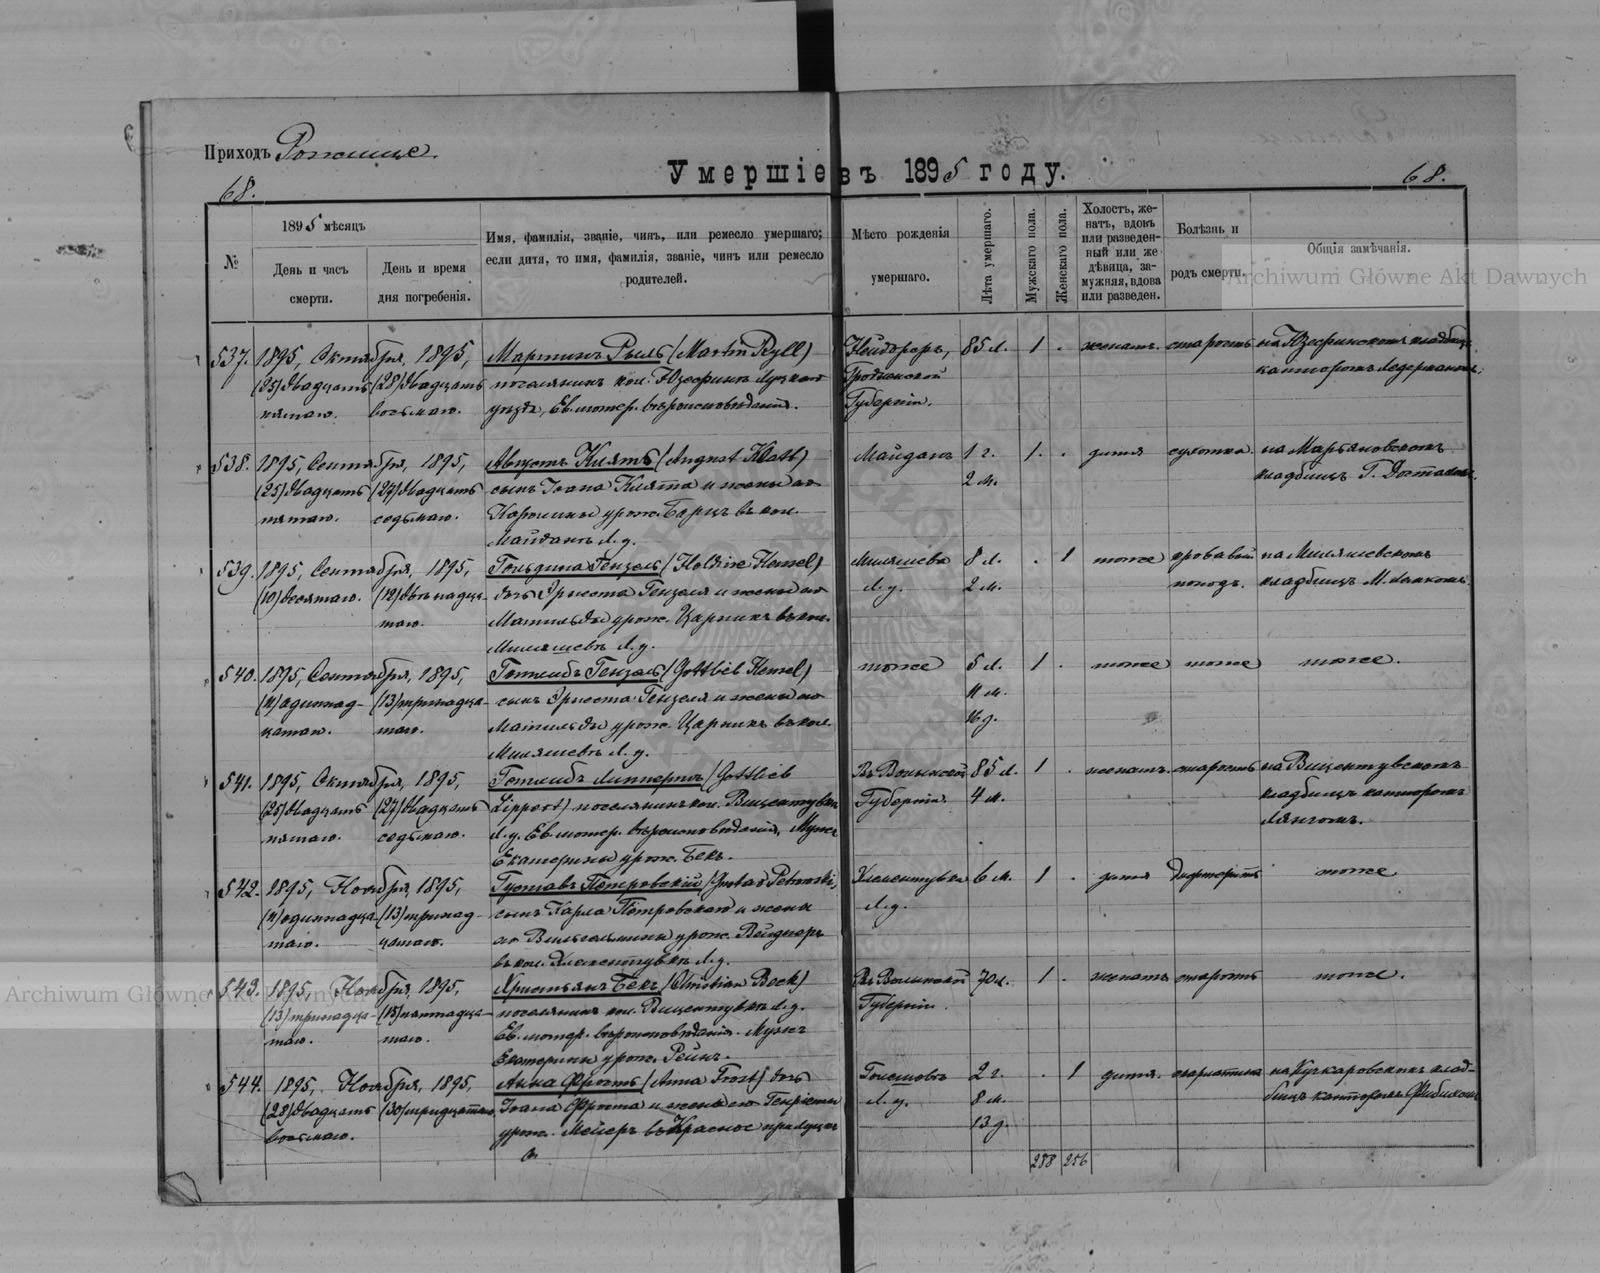 Приходъ Рожище.
Умершіе въ 1895 году.
68.
68.
№
1895 мѣсяцъ
День и часъ смерти.
День и время дня погребенія.
Имя, фамилія, званіе, чинъ, или ремесло умершаго;
если дитя, то имя, фамилія, званіе, чинъ или ремесло
родителей.
Мѣсто рожденія
умершаго.
Лѣта умершаго.
Мужскаго пола.
Женскаго пола.
Холостъ, же-
натъ, вдовъ
или разведен-
ный или же
дѣвица, за-
мужняя, вдова
или разведен.
Болѣзнь и
родъ смерти.
Общія замѣчанія.
Archiwum Główne Akt Dawnych
537. 1895, Октября, 1895, Мартинъ Рыль (Martin Ryll) Нейдорфъ, 85 л. 1 . женатъ. старость на Юзефинскомъ кладбищ.
(25) двадцать (28) двадцать поселянинъ кол. Юзефинъ Луцкаго Гродненской канторомъ Ледерманомъ.
пятаго. восьмаго. уѣзда, Ев. лютер. вѣроисповѣданія. Губерніи.
538. 1895, Сентября, 1895, Августъ Клятъ (August Klatt) Майданъ 1 г. 1 . дитя сухотка на Марьяновскомъ
(25) двадцать (27) двадцать сынъ Іоана Клятта и жены его 2 м. кладбищѣ Г.
пятаго. седьмаго. Каролины урож. Барцъ въ кол.
Майданъ Л. у.
539. 1895, Сентября, 1895, Гольдина Гензель (Holdine Hensel) Миляшево 8 л. . 1 тоже кровавый на Миляшевскомъ
(10) десятаго. (12) двѣнадца- дочь Эрнеста Гензеля и жены его Л. у. 2 м. поносъ. кладбищѣ
таго. Матильды урож. Царникъ въ кол.
Миляшевъ Л. у.
540. 1895, Сентября, 1895, Готлибъ Гензель (Gottlieb Hensel) тоже 5 л. 1 . тоже тоже тоже.
(11) одиннад- (13) тринадца- сынъ Эрнеста Гензеля и жены его 11 м.
цатаго. таго. Матильды урож. Царникъ въ кол. 16 д.
Миляшевъ Л. у.
541. 1895, Октября, 1895, Готлибъ Липпертъ (Gottlieb Въ Волынской 85 л. 1 . женатъ. старость на Вицентувскомъ
(25) двадцать (27) двадцать Lippert) поселянинъ кол. Вицентувка Губерніи. 4 м. кладбищѣ канторомъ
пятаго. седьмаго. Л. у. Ев. лютер. вѣроисповѣданія. Мужъ Лянгомъ.
Екатерины урож. Бекъ.
542. 1895, Ноября, 1895, Густавъ Петровскій (Gustav Petrowski) Клементувка 6 м. 1 . дитя дифтеритъ тоже
(11) одиннадца- (13) тринад- сынъ Карла Петровскаго и жены Л. у.
таго. цатаго. его Вильгельмины урож. Вейднеръ
въ кол. Клементувкѣ Л. у.
543. 1895, Ноября, 1895, Христьянъ Бекъ (Christian Beck) Въ Волынской 70 л. 1 . женатъ старость тоже.
(13) тринадца- (15) пятнадца- поселянинъ кол. Вицентувкѣ Л. у. Губерніи.
таго. таго. Ев. лютер. вѣроисповѣданія. Мужъ
Екатерины урож. Рейнъ.
Archiwum Główne Akt Dawnych
544. 1895, Ноября, 1895, Анна Фростъ (Anna Frost) дочь 2 г. . 1 дитя. скарлатина на кладби-
(28) двадцать (30) тридцатаго. Іоана Фроста и жены его Генріеты Л. у. 8 м. бищѣ канторомъ
восьмаго. урож. Мейеръ въ Красное при Луцкѣ 13 д.
288 256